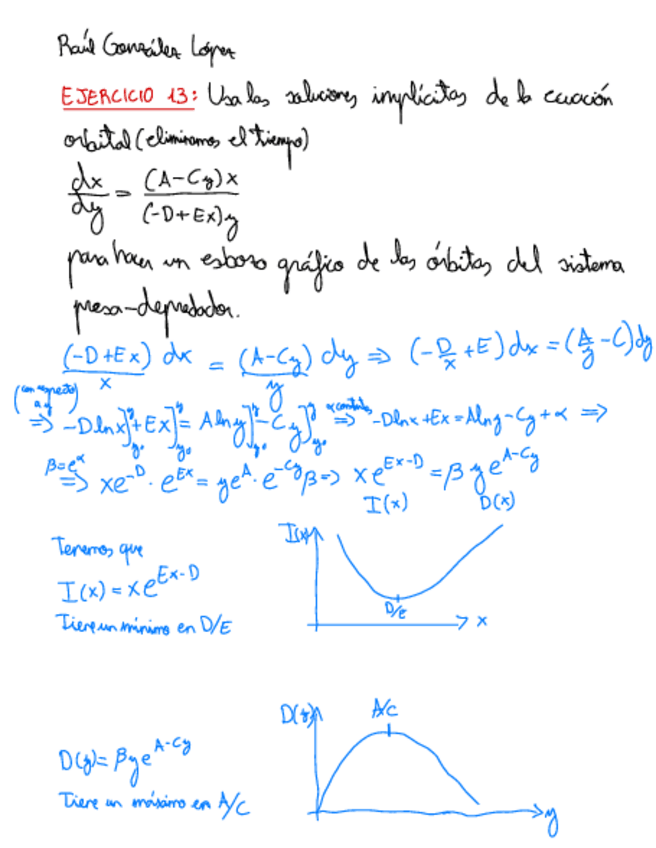 Raúl González López
EJERCICIO 13: Usa las soluciones implícitas de la ecuación
orbital (eliminamos el tiempo)
dx/dy = (A-Cy)x / (-D+Ex)y
para hacer un esbozo gráfico de las órbitas del sistema
presa-depredador.
(-D+Ex)/x dx = (A-Cy)/y dy ⇒ (-D/x + E)dx = (A/y - C)dy
(con respecto a y) ⇒ -D ln x]_{y₀}^{y} + Ex]_{y₀}^{y} = A ln y]_{y₀}^{y} - Cy]_{y₀}^{y} ⇒ (α constante) -D ln x + Ex = A ln y - Cy + α ⇒
β=e^α ⇒ xe^{-D} · e^{Ex} = ye^{A} · e^{-Cy}β ⇒ xe^{Ex-D} = βye^{A-Cy}
I(x) D(x)
Tenemos que
I(x) = xe^{Ex-D}
Tiene un mínimo en D/E
I(x)
D/E
x
D(y) = βye^{A-Cy}
Tiene un máximo en A/C
D(y)
A/C
y